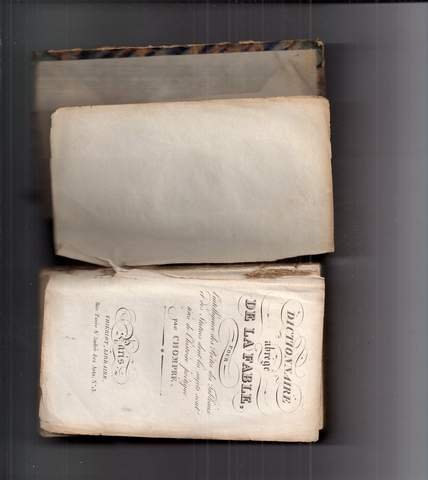 DICTIONNAIRE
abrégé
DE LA FABLE,
POUR
l'intelligence des Poètes, des Tableaux
et des Statues, dont les sujets sont
tirés de l'histoire poétique
par CHOMPRÉ.
Paris
THIERIOT, LIBRAIRE,
Rue Pavée St André des Arts, N° 5.